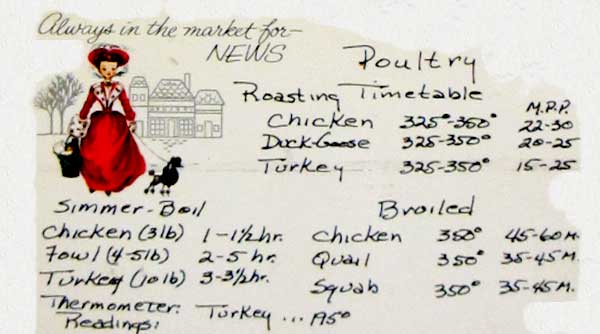 Always in the market for—
NEWS
Poultry
Roasting Timetable
M.P.P.
Chicken 325°-350° 22-30
Duck-Goose 325-350° 20-25
Turkey 325-350° 15-25
Simmer-Boil
Chicken (3lb) 1-1½ hr.
Fowl (4-5lb) 2-5 hr.
Turkey (10lb) 3-3½ hr.
Broiled
Chicken 350° 45-60 M.
Quail 350° 35-45 M.
Squab 350° 35-45 M.
Thermometer Readings: Turkey ... 195°